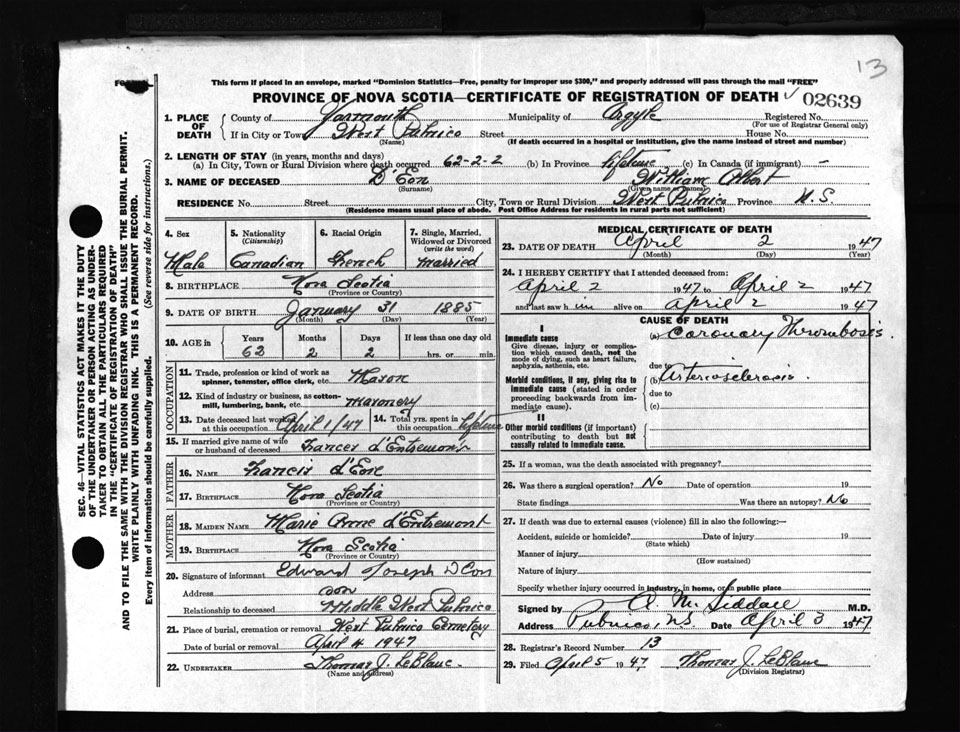 13
FORM
This form if placed in an envelope, marked "Dominion Statistics—Free, penalty for improper use $300," and properly addressed will pass through the mail "FREE"
PROVINCE OF NOVA SCOTIA—CERTIFICATE OF REGISTRATION OF DEATH 02639
1. PLACE OF DEATH County of Yarmouth Municipality of Argyle Registered No.
(For use of Registrar General only)
If in City or Town West Pubnico Street House No.
(Name) (If death occurred in a hospital or institution, give the name instead of street and number)
2. LENGTH OF STAY (in years, months and days)
(a) In City, Town or Rural Division where death occurred 62-2-2 (b) In Province lifetime (c) In Canada (if immigrant) —
3. NAME OF DECEASED D'Eon William Albert
(Surname) (Given name or names)
RESIDENCE No. Street City, Town or Rural Division West Pubnico Province N.S
(Residence means usual place of abode. Post Office Address for residents in rural parts not sufficient)
4. Sex 5. Nationality (Citizenship) 6. Racial Origin 7. Single, Married, Widowed or Divorced (write the word)
Male Canadian French married
8. BIRTHPLACE Nova Scotia
(Province or Country)
9. DATE OF BIRTH January 31 1885
(Month) (Day) (Year)
10. AGE in Years Months Days If less than one day old
62 2 2 hrs. or min.
OCCUPATION
11. Trade, profession or kind of work as spinner, teamster, office clerk, etc. Mason
12. Kind of industry or business, as cotton-mill, lumbering, bank, etc. masonery
13. Date deceased last worked at this occupation April 1/47 14. Total yrs. spent in this occupation lifetime
15. If married give name of wife or husband of deceased Frances d'Entremont
FATHER
16. NAME Francis d'Eon
17. BIRTHPLACE Nova Scotia
(Province or Country)
MOTHER
18. MAIDEN NAME Marie Anne d'Entremont
19. BIRTHPLACE Nova Scotia
(Province or Country)
20. Signature of informant Edward Joseph D'Eon
Address son
Relationship to deceased Middle West Pubnico
21. Place of burial, cremation or removal West Pubnico Cemetery
Date of burial or removal April 4 1947
22. UNDERTAKER Thomas J. LeBlanc
(Name and address)
MEDICAL CERTIFICATE OF DEATH
23. DATE OF DEATH April 2 1947
(Month) (Day) (Year)
24. I HEREBY CERTIFY that I attended deceased from:
April 2 1947 to April 2 1947
and last saw him alive on April 2 1947
CAUSE OF DEATH
I
Immediate cause (a) Coronary Thrombosis
Give disease, injury or complication which caused death, not the mode of dying, such as heart failure, asphyxia, asthenia, etc.
due to
Morbid conditions, if any, giving rise to immediate cause (stated in order proceeding backwards from immediate cause).
(b) Arteriosclerosis.
due to
(c)
II
Other morbid conditions (if important) contributing to death but not causally related to immediate cause.
25. If a woman, was the death associated with pregnancy?
26. Was there a surgical operation? No Date of operation 19
State findings Was there an autopsy? No
27. If death was due to external causes (violence) fill in also the following:—
Accident, suicide or homicide? Date of injury 19
(State which)
Manner of injury
(How sustained)
Nature of injury
Specify whether injury occurred in industry, in home, or in public place
Signed by A. M. Siddall M.D.
Address Pubnico, N.S Date April 3 1947
28. Registrar's Record Number 13
29. Filed April 5 1947 Thomas J. LeBlanc
(Division Registrar)
SEC. 46—VITAL STATISTICS ACT MAKES IT THE DUTY
OF THE UNDERTAKER OR PERSON ACTING AS UNDER-
TAKER TO OBTAIN ALL THE PARTICULARS REQUIRED
IN THE "CERTIFICATE OF REGISTRATION OF DEATH"
AND TO FILE THE SAME WITH THE DIVISION REGISTRAR WHO SHALL ISSUE THE BURIAL PERMIT.
WRITE PLAINLY WITH UNFADING INK. THIS IS A PERMANENT RECORD.
Every item of information should be carefully supplied. (See reverse side for instructions.)